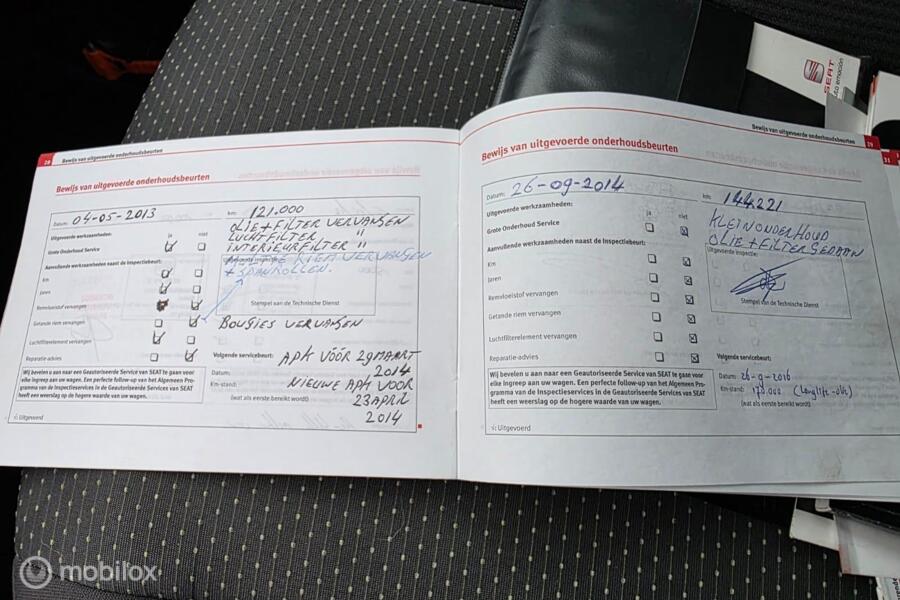 28 Bewijs van uitgevoerde onderhoudsbeurten
Bewijs van uitgevoerde onderhoudsbeurten
Datum: 04-05-2013 km: 121.000
OLIE + FILTER VERVANGEN
Uitgevoerde werkzaamheden: ja niet
LUCHTFILTER "
Grote Onderhoud Service
INTERIEURFILTER "
RIEM VERVANGEN
Aanvullende werkzaamheden naast de Inspectiebeurt:
+ SPANROLLEN.
Km
Jaren
Remvloeistof vervangen
Stempel van de Technische Dienst
Getande riem vervangen
BOUGIES VERVANGEN
Luchtfilterelement vervangen
Reparatie-advies
Volgende servicebeurt: APK VÓÓR 29 MAART
2014
Datum:
NIEUWE APK VOOR
Km-stand:
23 APRIL
(wat als eerste bereikt wordt)
2014
Wij bevelen u aan naar een Geautoriseerde Service van SEAT te gaan voor
elke ingreep aan uw wagen. Een perfecte follow-up van het Algemeen Pro-
gramma van de Inspectieservices in de Geautoriseerde Services van SEAT
heeft een weerslag op de hogere waarde van uw wagen.
√: Uitgevoerd
Bewijs van uitgevoerde onderhoudsbeurten 29
Bewijs van uitgevoerde onderhoudsbeurten
Datum: 26-09-2014 km: 144.221
Uitgevoerde werkzaamheden: ja niet
KLEIN ONDERHOUD
Grote Onderhoud Service
OLIE + FILTER GEDAAN
Aanvullende werkzaamheden naast de Inspectiebeurt:
Uitgevoerde inspectie:
Km
Jaren
Remvloeistof vervangen
Stempel van de Technische Dienst
Getande riem vervangen
Luchtfilterelement vervangen
Reparatie-advies
Volgende servicebeurt:
Datum: 26-9-2016
Km-stand: 170.000 (Longlife-olie)
(wat als eerste bereikt wordt)
Wij bevelen u aan naar een Geautoriseerde Service van SEAT te gaan voor
elke ingreep aan uw wagen. Een perfecte follow-up van het Algemeen Pro-
gramma van de Inspectieservices in de Geautoriseerde Services van SEAT
heeft een weerslag op de hogere waarde van uw wagen.
√: Uitgevoerd
31
SEAT
auto emoción
mobilox